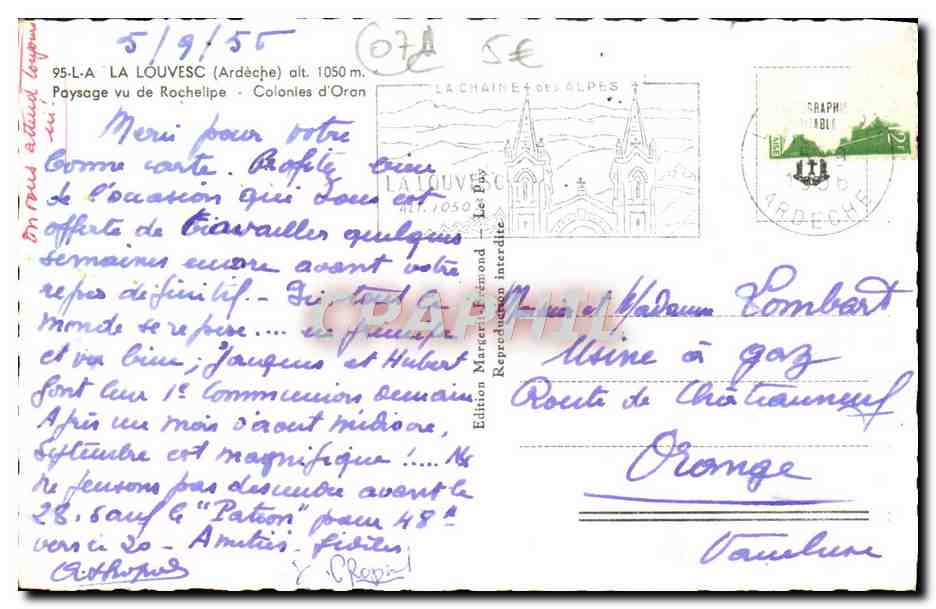 5/9/55
07
5€
95-L-A LA LOUVESC (Ardèche) alt. 1050 m.
Paysage vu de Rochelipe - Colonies d'Oran
On vous attend toujours
ici
Merci pour votre
bonne carte. Profitez bien
de l'occasion qui vous est
offerte de travailler quelques
semaines encore avant votre
repos définitif. - Ici, tout le
monde se repose.... en principe
et va bien; Jacques et Hubert
font leur 1e Communion demain.
Après un mois d'Août médiocre,
Septembre est magnifique !.... Ns
ne pensons pas descendre avant le
28. sauf le "Patron" pour 48h
vers le 20 - Amitiés.
LA CHAINE DES ALPES
LA LOUVESC
ALT. 1050
ARDECHE
Edition Margerit-Brémond - Le Puy
Reproduction interdite
CPAPHIL
Monsieur et Madame Lombart
Usine à gaz
Route de Châteauneuf
Orange
Vaucluse